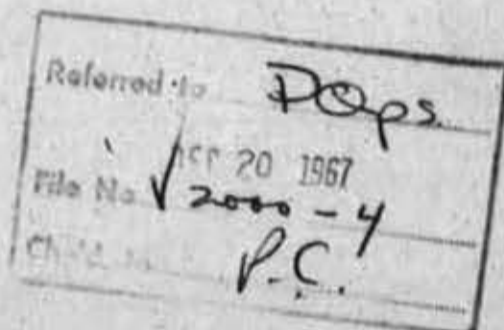 Referred to DOps.
20 1967
File No. 2000-4
P.C.